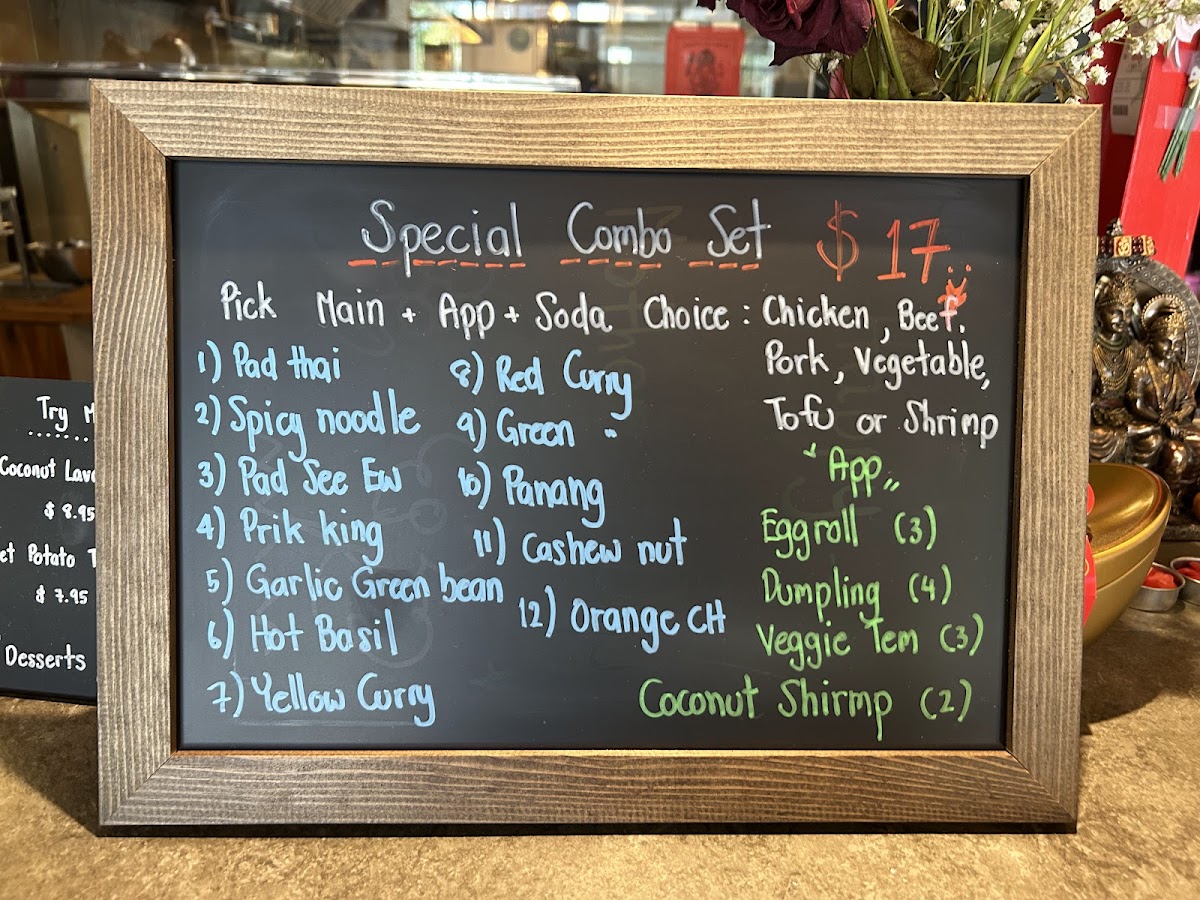 Special Combo Set $17
Pick Main + App + Soda Choice : Chicken, Beef.
Pork, Vegetable,
Tofu or Shrimp
1) Pad thai
2) Spicy noodle
3) Pad See Ew
4) Prik king
5) Garlic Green bean
6) Hot Basil
7) Yellow Curry
8) Red Curry
9) Green "
10) Panang
11) Cashew nut
12) Orange CH
"App"
Eggroll (3)
Dumpling (4)
Veggie Tem (3)
Coconut Shirmp (2)
Try
Coconut
$8.95
Potato
$7.95
Desserts